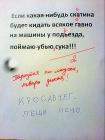 Если какая-нибудь скатина
будет кидать всякое гавно
на машины у подъезда,
поймаю убью,сука!!!
КРОСАВЧЕГ.
ПЕШИ ИСЧО